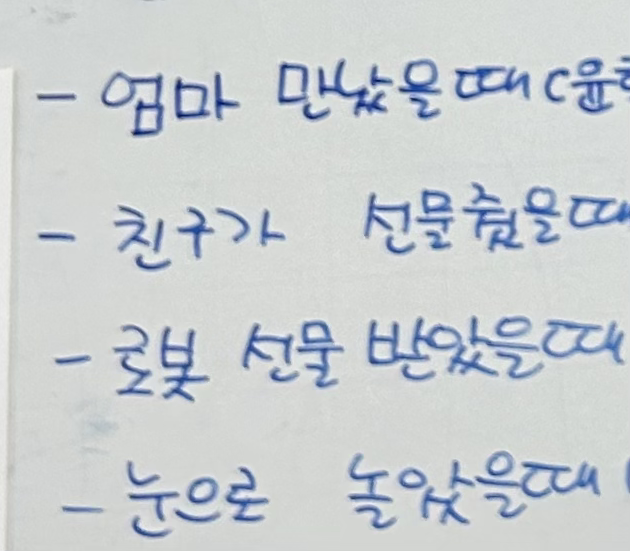 - 엄마 만났을때 (윤
- 친구가 선물줬을때
- 로봇 선물 받았을때
- 눈으로 놀았을때